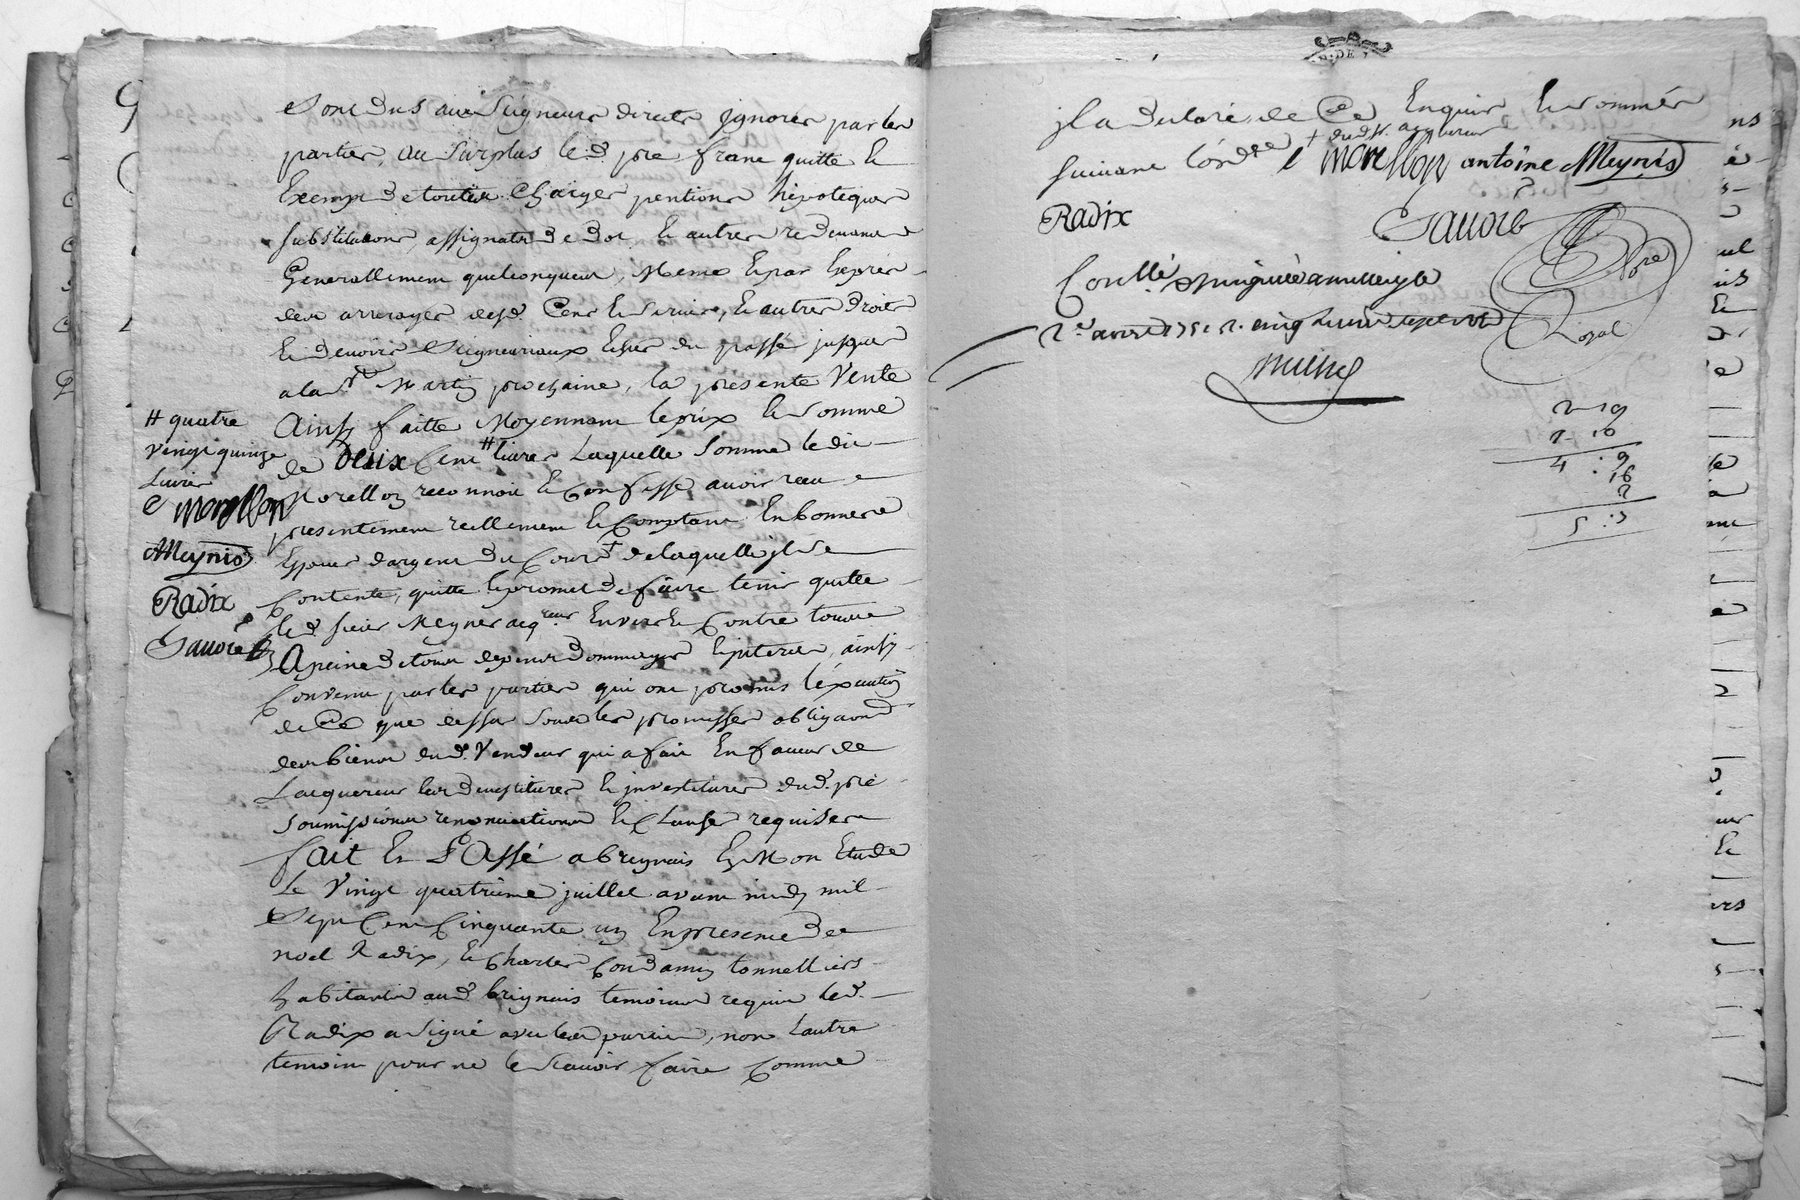 Sont dus aux Seigneurs directs ignorés par les
parties, au Surplus led. pre franc quitte Et
Exempt de toutes Charges pentions hipoteques
Substitutions, assignats de dot Et autres redevances
Generallement quelconques, Meme Et par Exprés
des arrerages desd. Cens Et Servis, Et autres droits
Et devoirs Seigneuriaux Echus du passé jusques
a la St Martin prochaine, la presente Vente
Ainsy faitte Moyennant le prix Et Somme
de Deux Cent # livres Laquelle Somme ledit
Morellon reconnoit Et Confesse avoir receu
presentement reellement Et Comptant En bonnes
Especes d'argent du Cours de laquelle il Se
Contente, quitte Et promet de faire tenir quitte
led. sieur Meynis acquereur Envers Et Contre tous
A peine de tous depens dommages Et interets, ainsy
Convenu par les parties qui ont promis l'éxécution
de Ce que dessus Sous les promesses obligaons
des biens dud. Vendeur qui a fait En faveur de
Lacquereur les devestitures Et investitures dud. pré
Soumissions renonciations Et Clauses requises
fait Et Passé a Brignais En Mon Etude
Le Vingt quatrieme juillet avant midy mil
Sept Cent Cinquante un En presence de
noel Radix, Et Charles Condamin tonnelliers
habitants aud. brignais temoins requis led.
Radix a Signé avec les parties, non Lautre
temoin pour ne le Scavoir faire Comme
# quatre
Vingt quinze
Livres
Morellon
AMeynis
Radix
Savoie
il a declaré, de Ce Enquis Et Sommés
Suivant l'ordce + dud. sr. acquereur
Morellon antoine Meynis
Radix
Savoie
Conllé
Royal
2 19
1 10
4 : 9
16
2
5 : 7